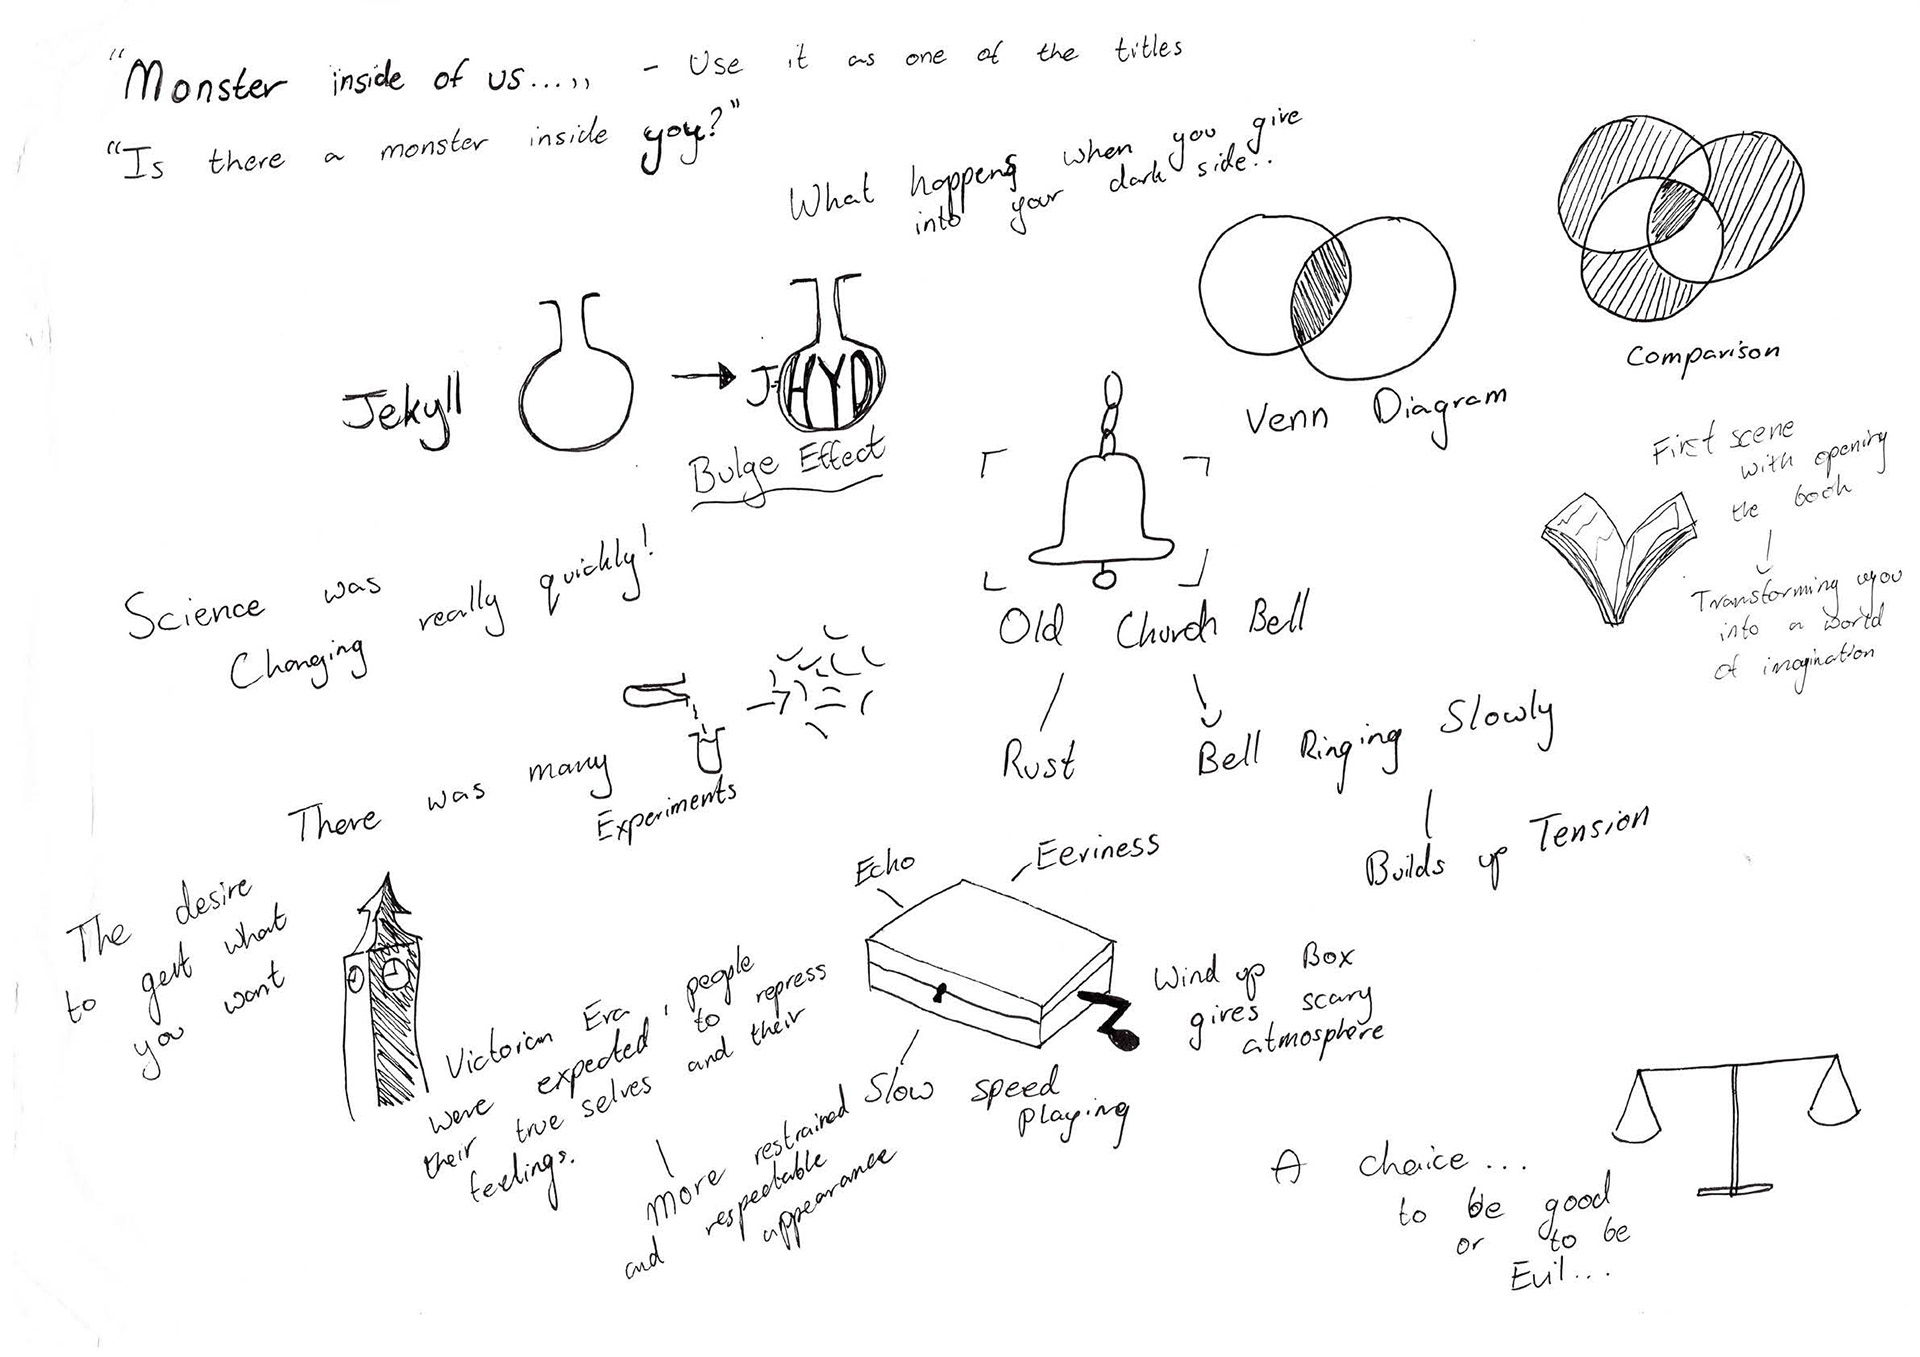 “Monster inside of us...,, - Use it as one of the titles
“Is there a monster inside you?”
What happens when you give
into your dark side..
Jekyll
J-HYD
Bulge Effect
Venn Diagram
Comparison
First scene
with opening
the book
Transforming you
into a world
of imagination
Old Church Bell
Rust
Bell Ringing Slowly
Builds up Tension
Science was
Changing really quickly!
There was many
Experiments
The desire
to get what
you want
Victorian Era, people
were expected to repress
their true selves and their
feelings.
More restrained
and respectable
appearance
Echo
Eeriness
Wind up Box
gives scary
atmosphere
Slow speed
Playing
A choice...
to be good
or to be
Evil...